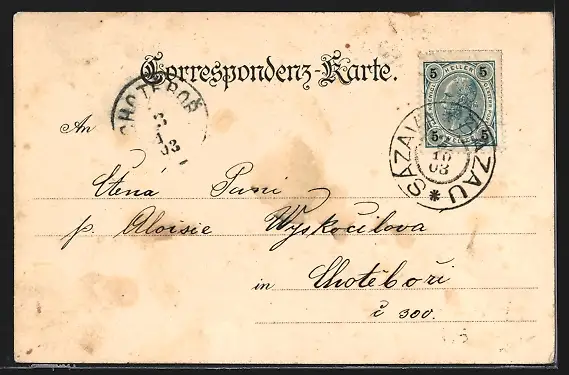 Correspondenz-Karte.
5 HELLER 5
5 HELLER 5
CHOTĚBOŘ
3
03
SÁZAVA SAZAU
10
03
An
Ctěná Paní
p. Aloisie Vyskočilova
in Chotěboři
č 300.